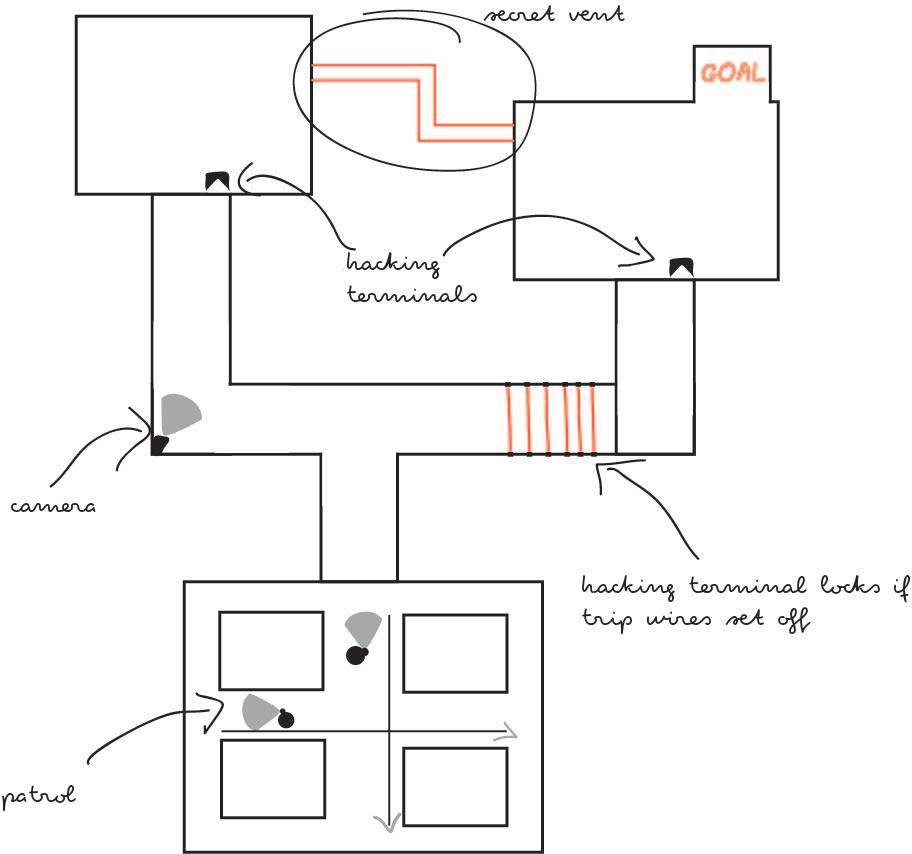 secret vent
GOAL
hacking
terminals
camera
hacking terminal locks if
trip wires set off
patrol